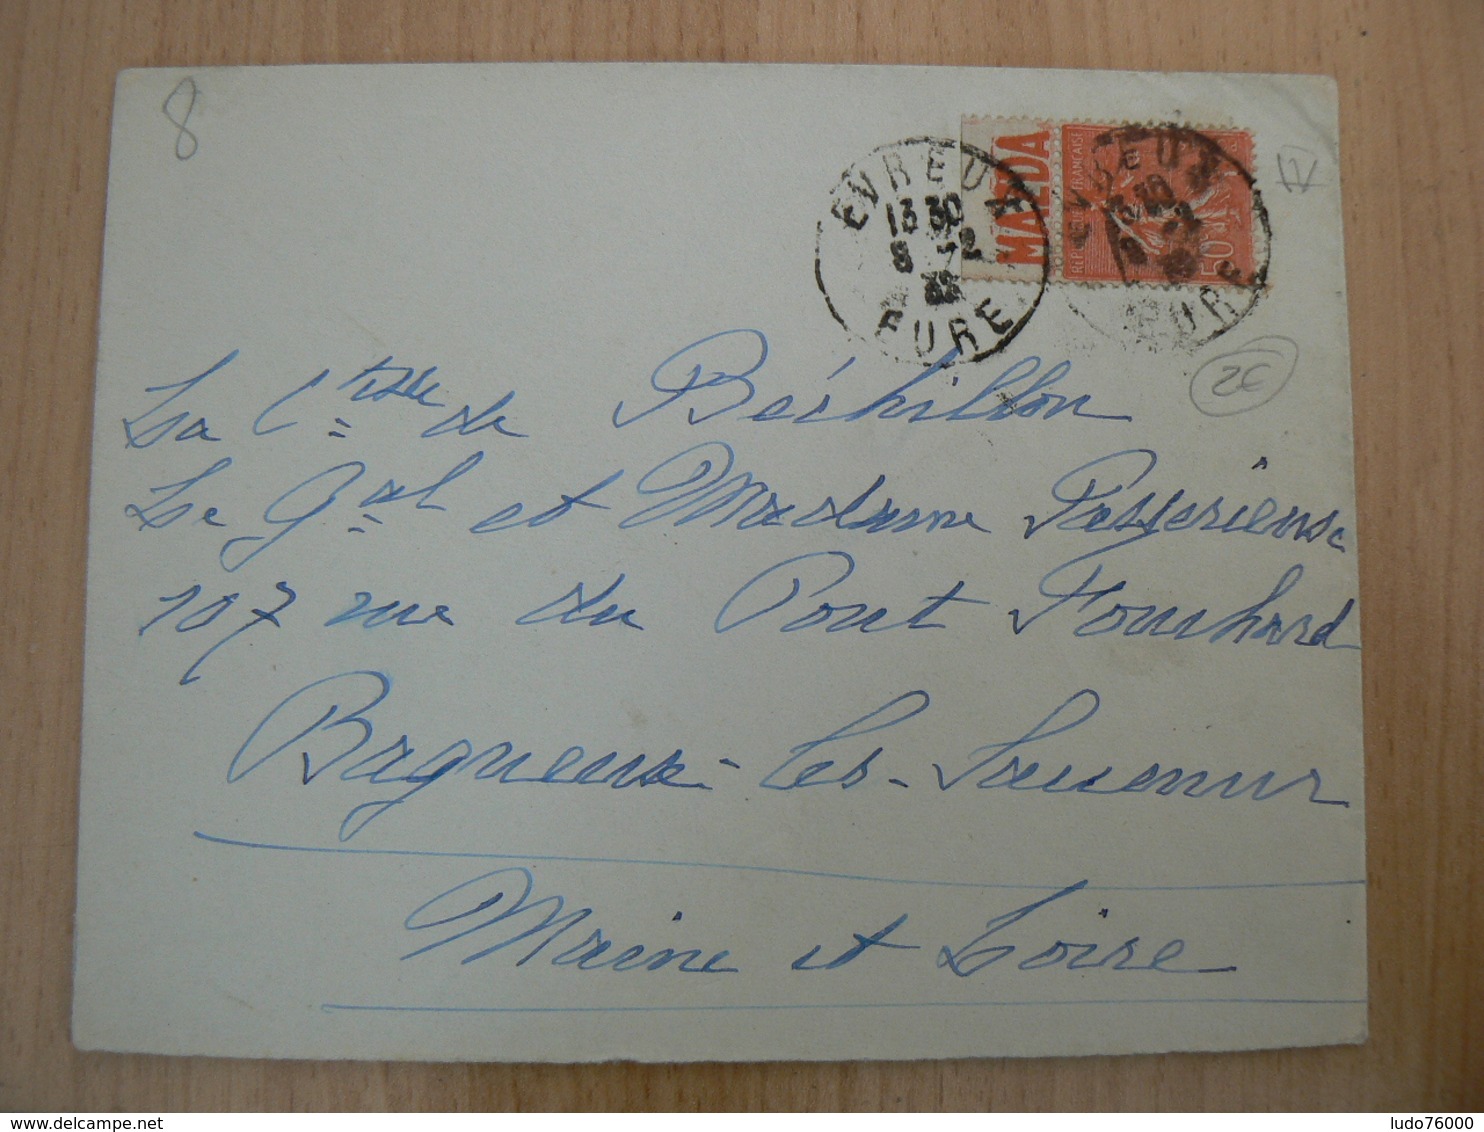 8
EVREUX
13 30
8 -2
EURE
MAÏZDA
RÉPUBLIQUE FRANÇAISE
50c
EVREUX
13 30
8 -2
EURE
12
2€
La Ctesse de Béchillon
Le Gal et Madame Passerieuse
107 rue du Pont Fouchard
Bagneux-les-Saumur
Maine et Loire
ludo76000